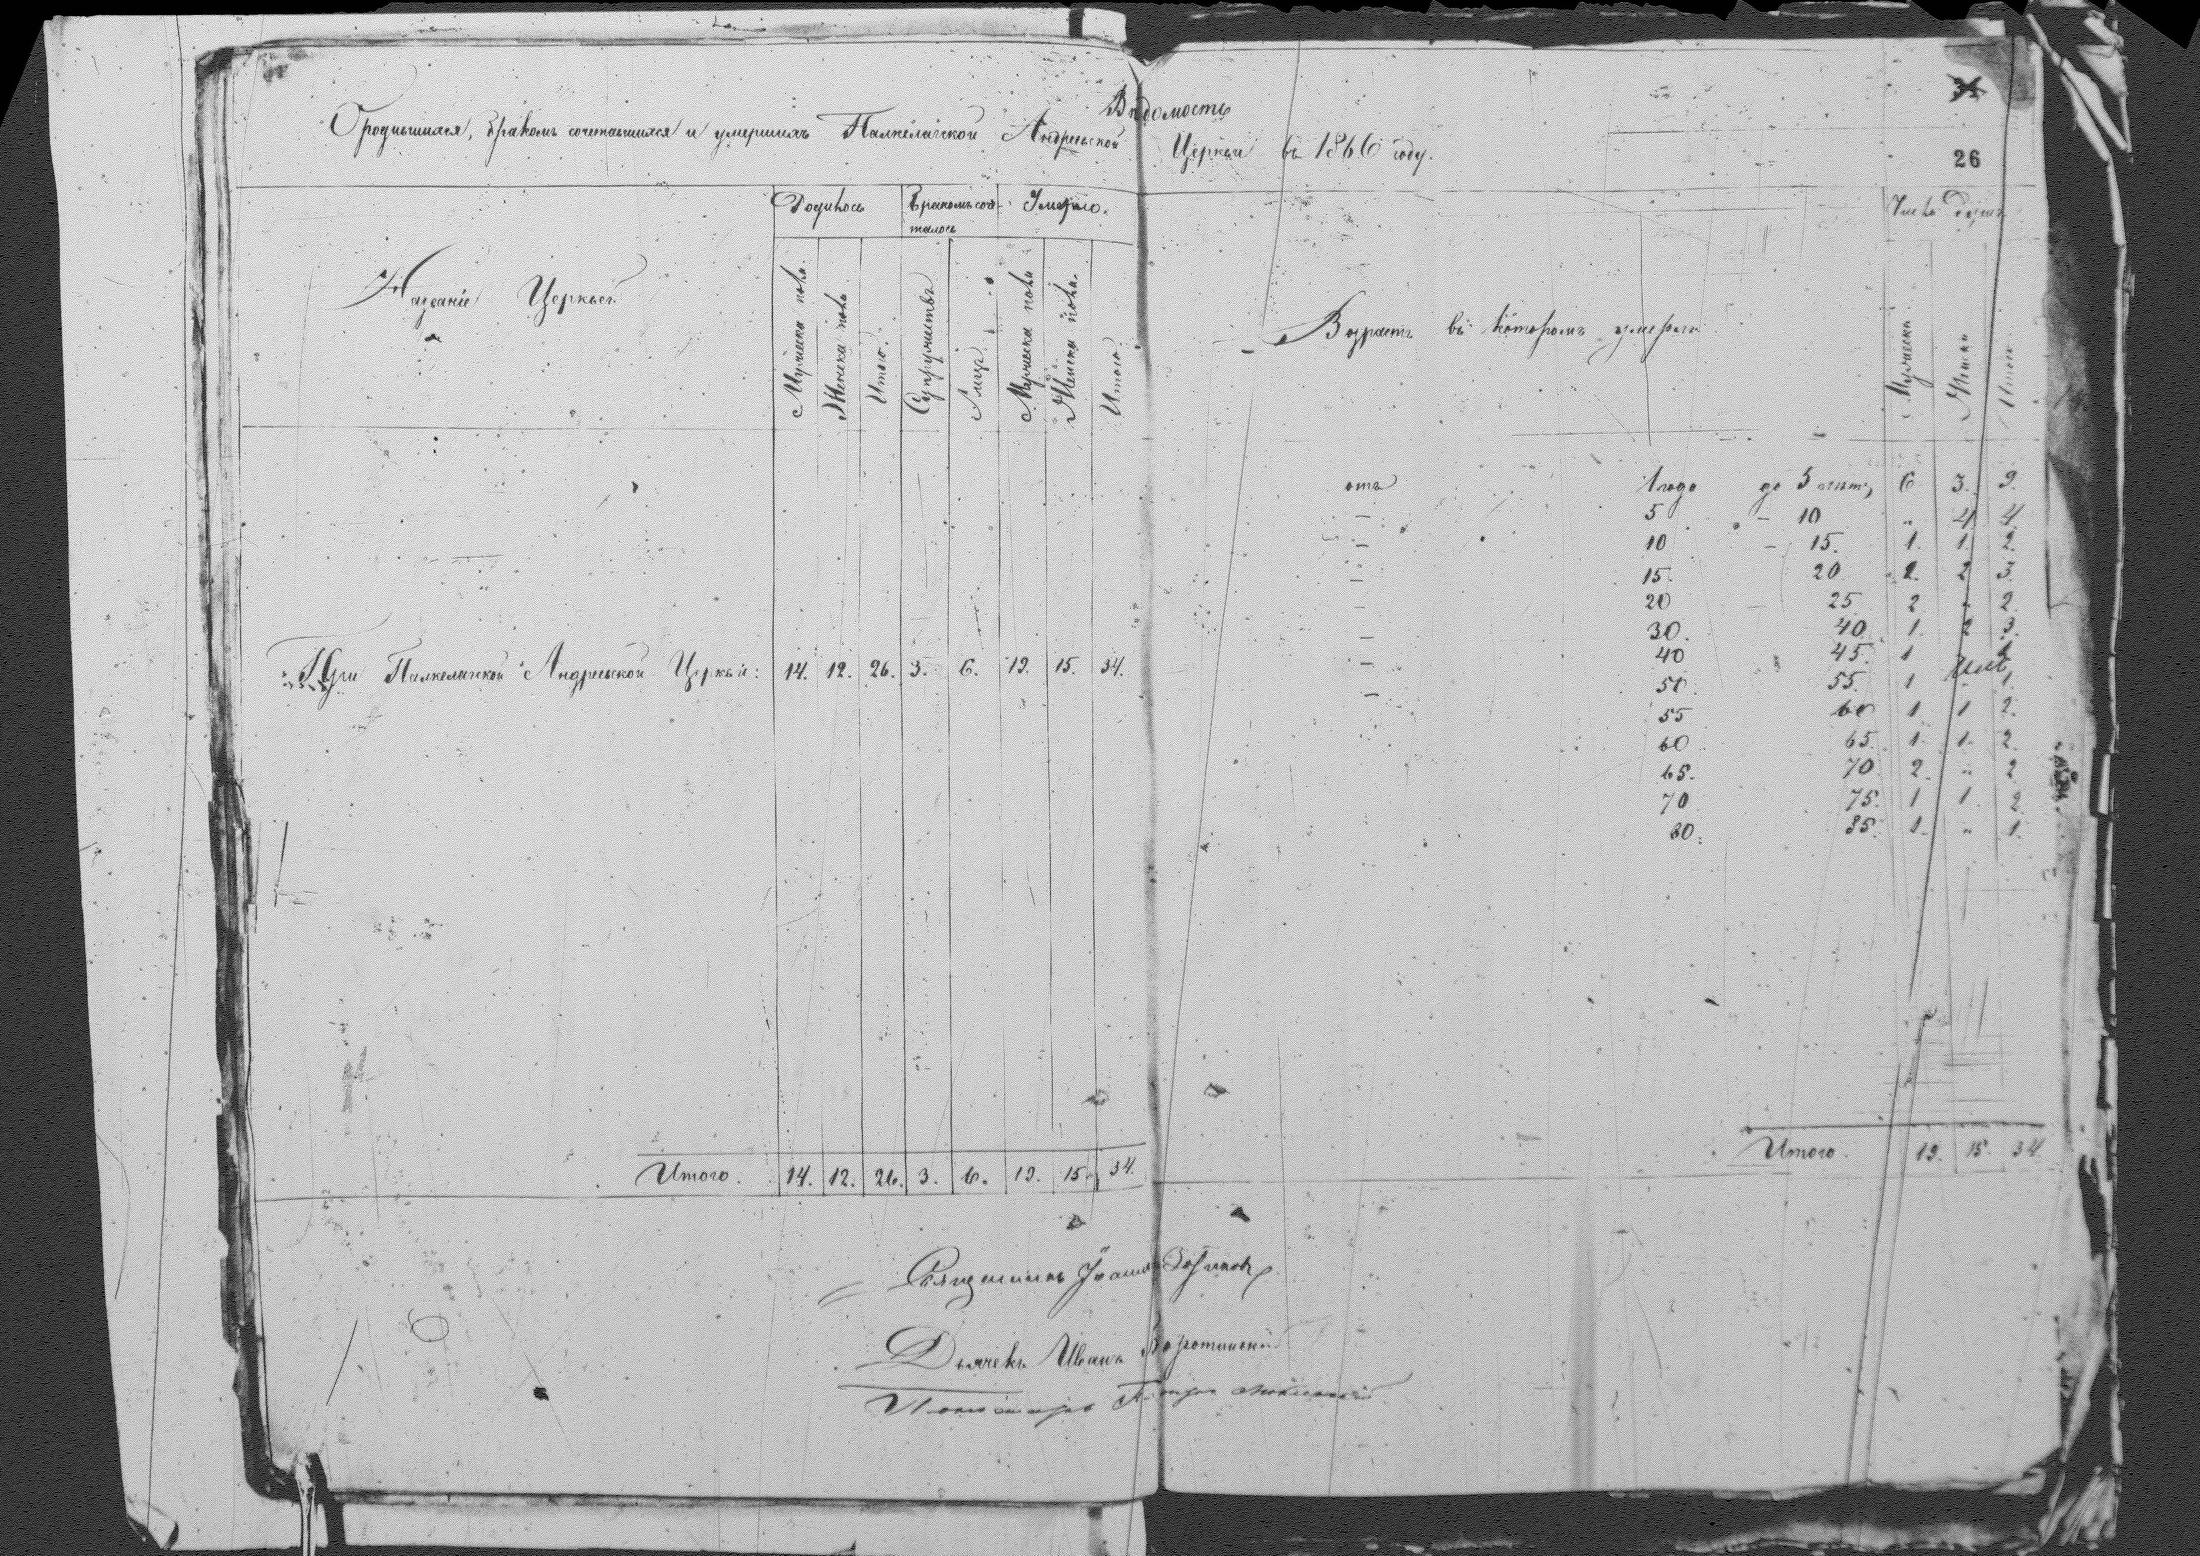 Вѣдомость
О родившихся, бракомъ сочетавшихся и умершихъ Палкелакской Андреевской Церкви въ 1866 году.
34
26
Родилось Бракомъ соче- Умерло. Число душъ
талось
Названіе Церквей
Мужеска пола. Женска пола Итого. Супружествъ Лицъ. Мужеска пола Женска пола. Итого.
Возрастъ въ которомъ умерли
Мужеска Женска Итого
При Палкелакской Андреевской Церкви: 14. 12. 26. 3. 6. 19. 15. 34.
отъ 1 года до 5 лѣтъ, 6 3. 9.
— 5 — 10 „ 4 4
— 10 — 15. 1. 1. 2.
— 15. 20 2. 3.
— 20 — 25 2 „ 2.
— 30. 40 1. 2 3.
— 40 45. 1
— 50. 55. 1 1.
55 60 1 1 2.
60 65. 1. 1. 2.
65. 70. 2. „ 2
70 75. 1 1. 2.
80. 85. 1. „ 1.
Итого. 14. 12. 26. 3. 6. 19. 15. 34.
Итого. 19. 15. 34
Священникъ Іоаннъ
Дьячекъ Иванъ Воротинскій
Пономарь Петръ